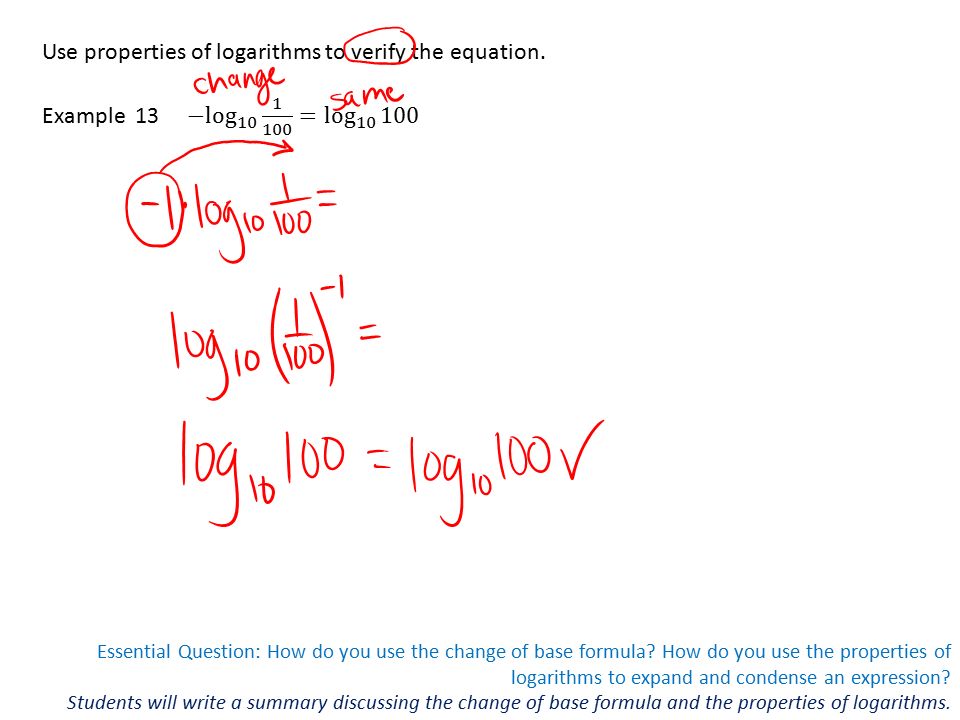 Use properties of logarithms to verify the equation.
change same
Example 13 −log₁₀ 1/100 = log₁₀ 100
-1 · log₁₀ 1/100 =
log₁₀ (1/100)⁻¹ =
log₁₀ 100 = log₁₀ 100 ✓
Essential Question: How do you use the change of base formula? How do you use the properties of
logarithms to expand and condense an expression?
Students will write a summary discussing the change of base formula and the properties of logarithms.